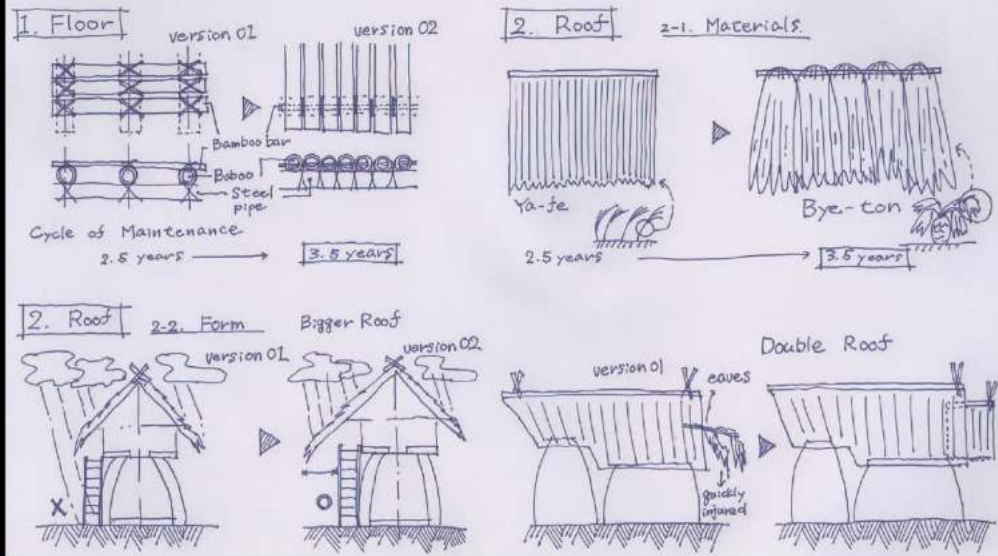 1. Floor
version 01
version 02
Bamboo bar
Baboo
Steel
pipe
Cycle of Maintenance
2.5 years
3.5 years
2. Roof
2-1. Materials.
Ya-fe
Bye-ton
2.5 years
3.5 years
2. Roof
2-2. Form
Bigger Roof
version 01
version 02
X
O
Double Roof
version 01
eaves
quickly
injured